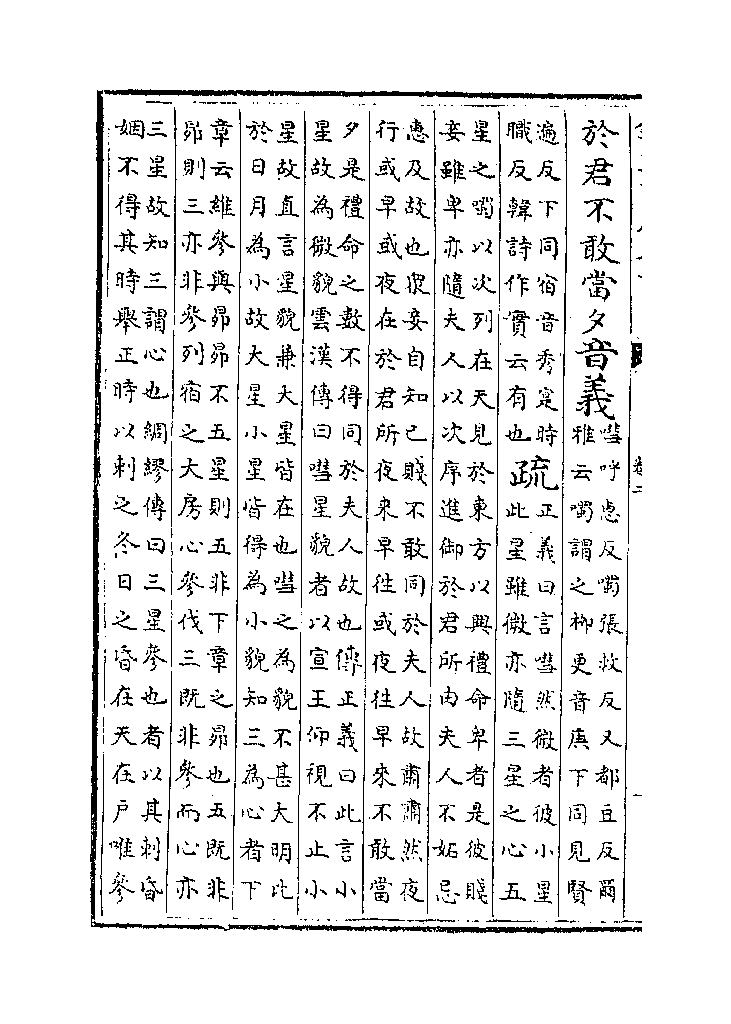 於君不敢當夕音義
嘒呼惠反噣張救反又都豆反爾
雅云噣謂之柳更音庚下同見賢
遍反下同宿音秀寔時
職反韓詩作實云有也
疏
正義曰言嘒然微者彼小星
此星雖微亦隨三星之心五
星之噣以次列在天見於東方以興禮命卑者是彼賤
妾雖卑亦隨夫人以次序進御於君所由夫人不妬忌
惠及故也衆妾自知己賤不敢同於夫人故肅肅然夜
行或早或夜在於君所夜來早往或夜往早來不敢當
夕是禮命之數不得同於夫人故也傳正義曰此言小
星故為微貌雲漢傳曰嘒星貌者以宣王仰視不止小
星故直言星貌兼大星皆在也嘒之為貌不甚大明比
於日月為小故大星小星皆得為小貌知三為心者下
章云維參與昴昴不五星則五非下章之昴也五既非
昴則三亦非參列宿之大房心參伐三既非參而心亦
三星故知三謂心也綢繆傳曰三星參也者以其刺昏
姻不得其時舉正時以刺之冬日之昏在天在戶唯參